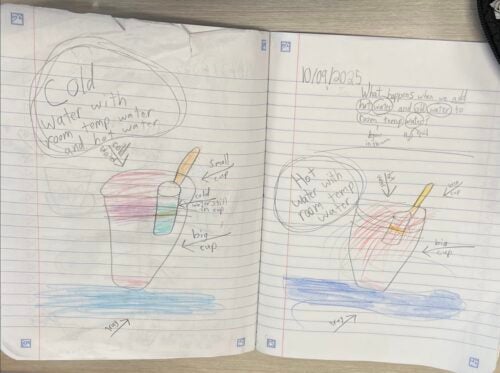 Cold
water with
room temp water
and hot water
small
cup
cold
water still
in cup
big
cup
tray
10/09/2025
What happens when we add
hot water and cold water to
room temp water?
Hot
water with
room temp
water
big
cup
tray